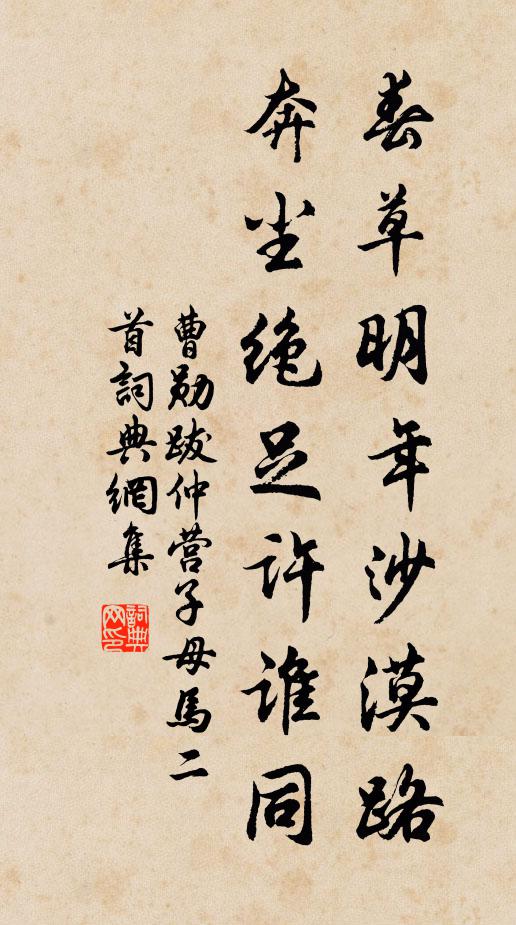 春草明年沙漠路
奔尘绝足许谁同
曹勋跋仲营子母马二
首詞典網集
詞典
网印